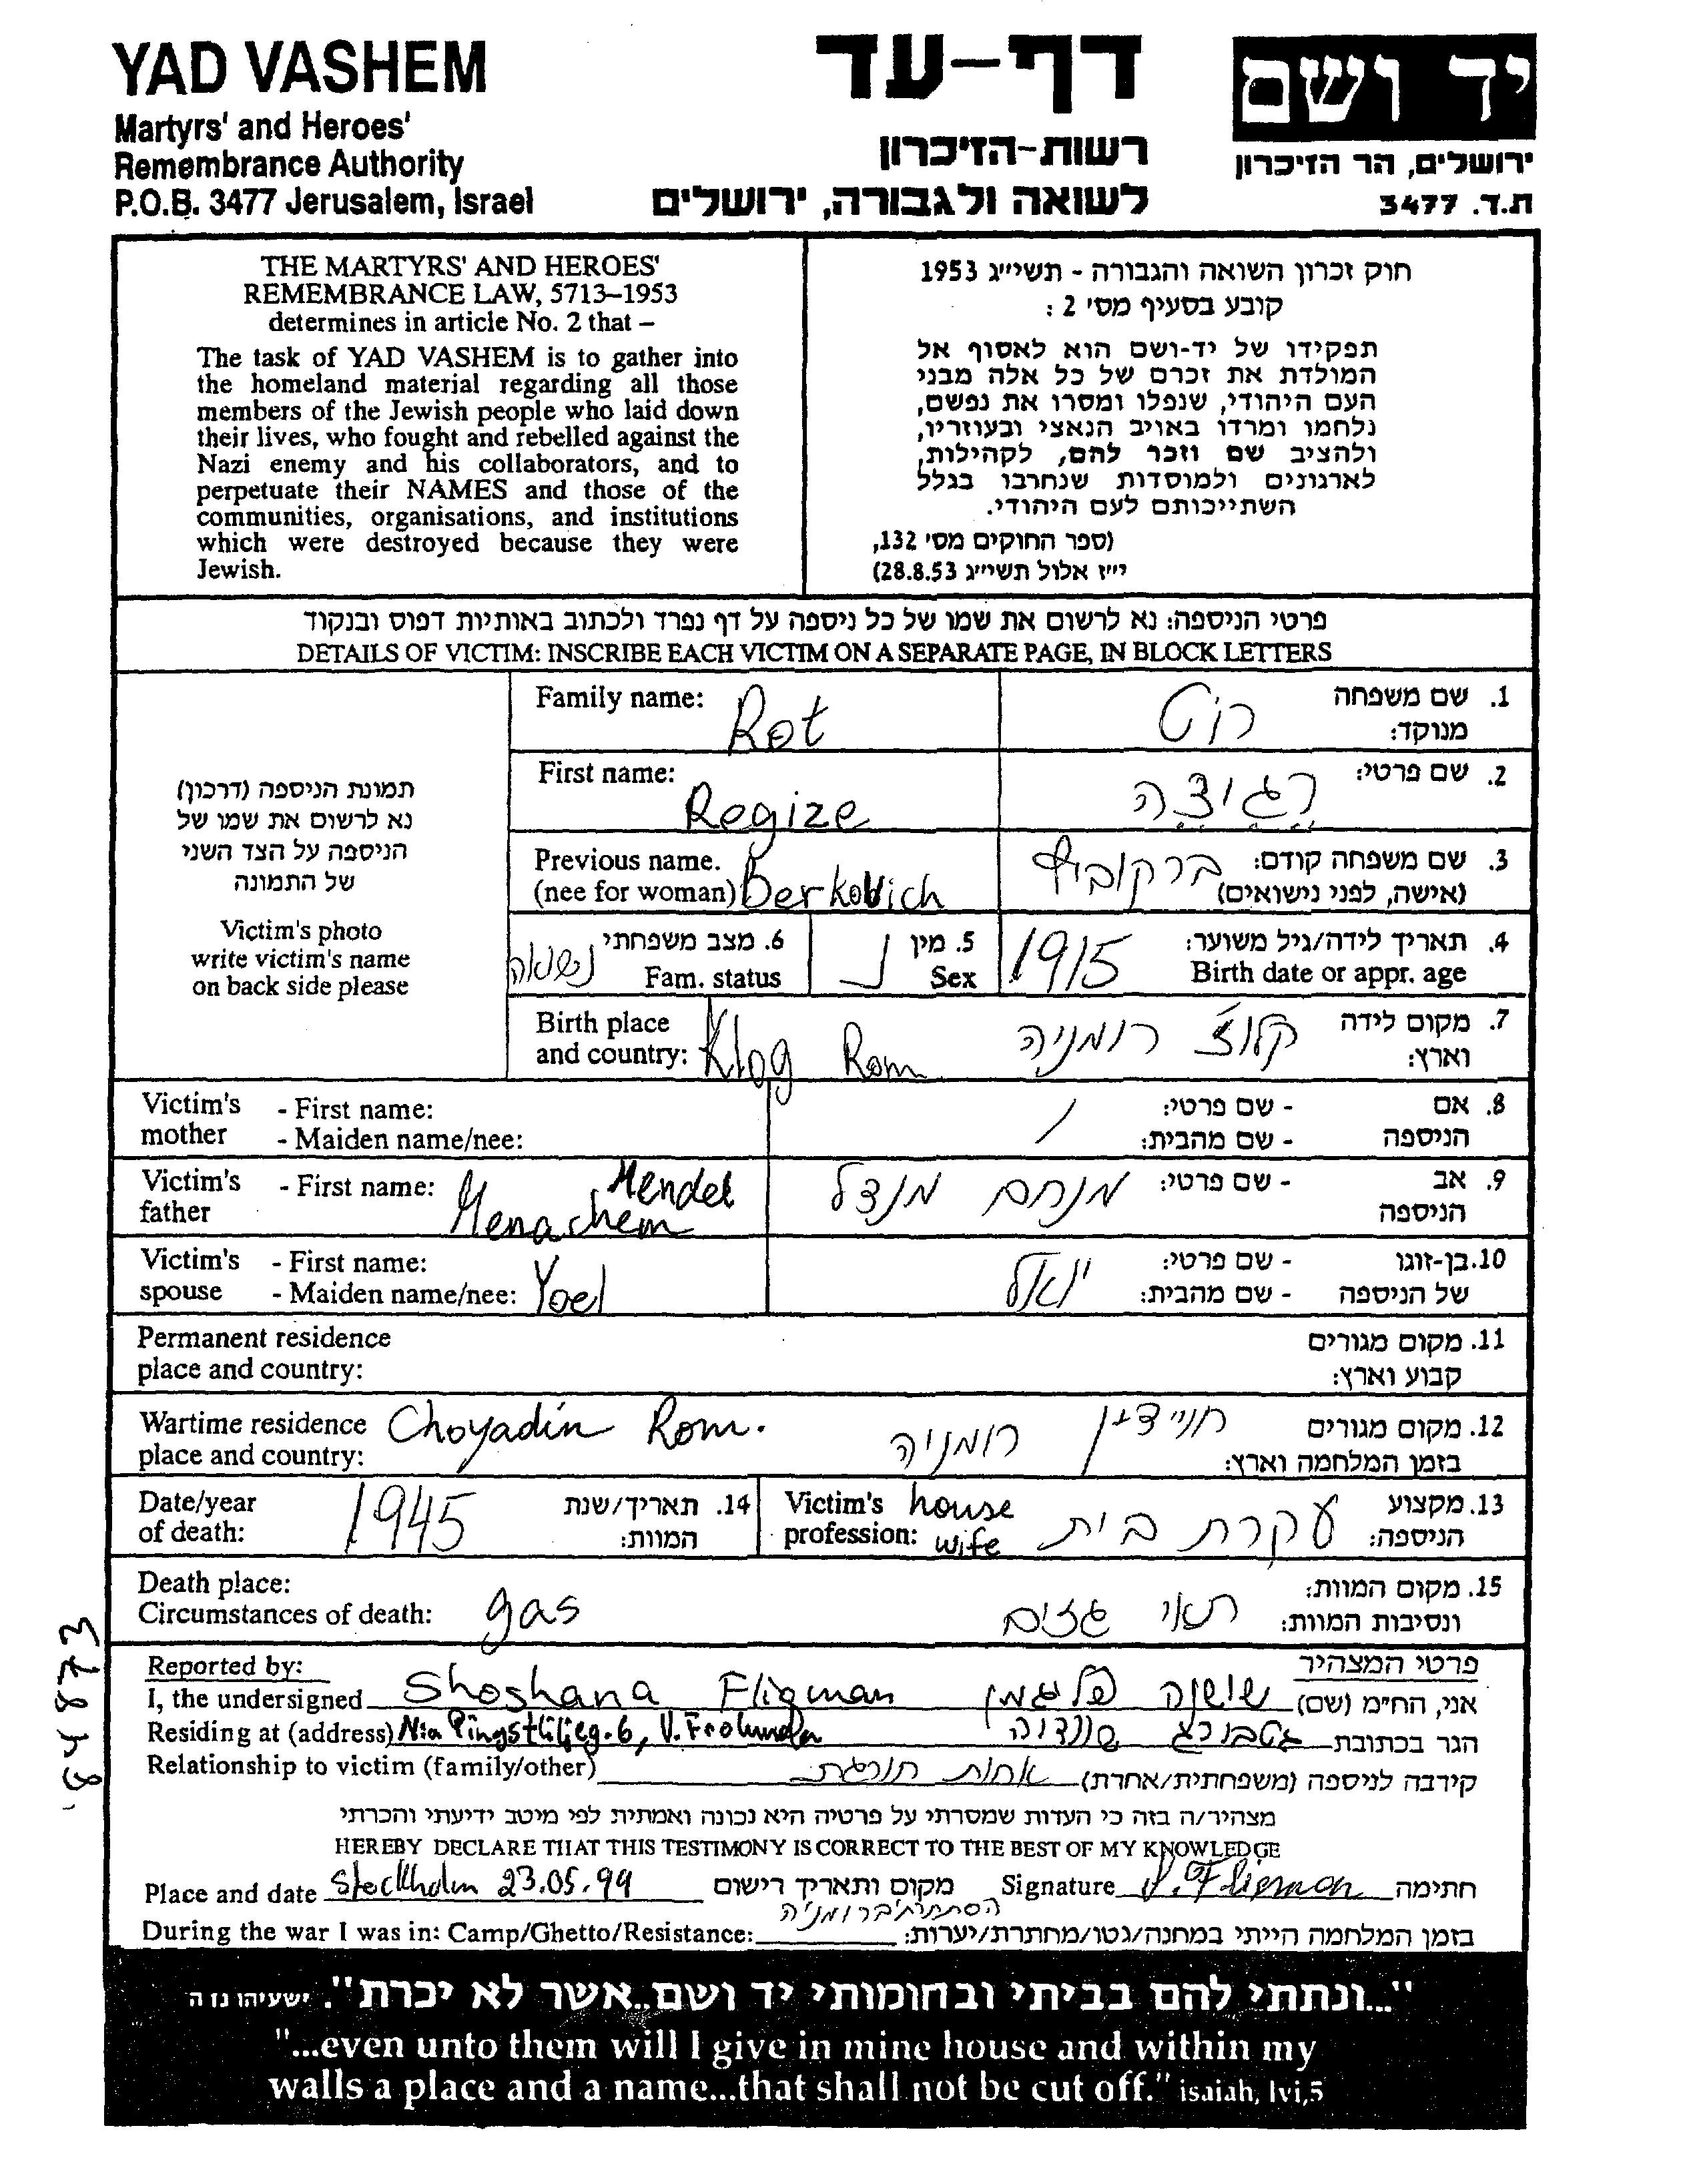 YAD VASHEM
Martyrs' and Heroes'
Remembrance Authority
P.O.B. 3477 Jerusalem, Israel
דף-עד
רשות-הזיכרון
לשואה ולגבורה, ירושלים
יד ושם
ירושלים, הר הזיכרון
ת.ד. 3477
THE MARTYRS' AND HEROES'
REMEMBRANCE LAW, 5713–1953
determines in article No. 2 that –
The task of YAD VASHEM is to gather into
the homeland material regarding all those
members of the Jewish people who laid down
their lives, who fought and rebelled against the
Nazi enemy and his collaborators, and to
perpetuate their NAMES and those of the
communities, organisations, and institutions
which were destroyed because they were
Jewish.
חוק זכרון השואה והגבורה - תשי״ג 1953
קובע בסעיף מס׳ 2 :
תפקידו של יד-ושם הוא לאסוף אל
המולדת את זכרם של כל אלה מבני
העם היהודי, שנפלו ומסרו את נפשם,
נלחמו ומרדו באויב הנאצי ובעוזריו,
ולהציב שם וזכר להם, לקהילות,
לארגונים ולמוסדות שנחרבו בגלל
השתייכותם לעם היהודי.
(ספר החוקים מס׳ 132,
י״ז אלול תשי״ג 28.8.53)
פרטי הניספה: נא לרשום את שמו של כל ניספה על דף נפרד ולכתוב באותיות דפוס ובנקוד
DETAILS OF VICTIM: INSCRIBE EACH VICTIM ON A SEPARATE PAGE, IN BLOCK LETTERS
תמונת הניספה (דרכון)
נא לרשום את שמו של
הניספה על הצד השני
של התמונה
Victim's photo
write victim's name
on back side please
Family name: Rot רוט 1. שם משפחה
מנוקד:
First name: Regize רגיצה 2. שם פרטי:
Previous name. Berkovich ברקוביץ 3. שם משפחה קודם:
(nee for woman) (אישה, לפני נישואים)
נשואה 6. מצב משפחתי נ 5. מין 1915 4. תאריך לידה/גיל משוער:
Fam. status Sex Birth date or appr. age
Birth place Klog Rom קלוז׳ רומניה 7. מקום לידה
and country: וארץ:
Victim's - First name: / - שם פרטי: 8. אם
mother - Maiden name/nee: - שם מהבית: הניספה
Victim's - First name: Menachem Mendel מנחם מנדל - שם פרטי: 9. אב
father הניספה
Victim's - First name: - שם פרטי: 10. בן-זוגו
spouse - Maiden name/nee: Yoel יואל - שם מהבית: של הניספה
Permanent residence 11. מקום מגורים
place and country: קבוע וארץ:
Wartime residence Choyadin Rom. רומניה חויידין 12. מקום מגורים
place and country: בזמן המלחמה וארץ:
Date/year 1945 14. תאריך/שנת
of death: המוות:
Victim's house עקרת בית 13. מקצוע
profession: wife הניספה:
Death place: 15. מקום המוות:
Circumstances of death: gas תאי גזים ונסיבות המוות:
Reported by: פרטי המצהיר
I, the undersigned Shoshana Fligman שושנה פליגמן אני, הח״מ (שם)
Residing at (address) Nia Pingstliljeg. 6, V. Frolunda גטבורג שוודיה הגר בכתובת
Relationship to victim (family/other) אחות חורגת קירבה לניספה (משפחתית/אחרת)
מצהיר/ה בזה כי העדות שמסרתי על פרטיה היא נכונה ואמתית לפי מיטב ידיעתי והכרתי
HEREBY DECLARE THAT THIS TESTIMONY IS CORRECT TO THE BEST OF MY KNOWLEDGE
Place and date Stockholm 23.05.99 מקום ותאריך רישום Signature S. Fligman חתימה
הסתתרתי ברומניה
During the war I was in: Camp/Ghetto/Resistance: בזמן המלחמה הייתי במחנה/גטו/מחתרת/יערות:
"...ונתתי להם בביתי ובחומותי יד ושם..אשר לא יכרת". ישעיהו נו ה
"...even unto them will I give in mine house and within my
walls a place and a name...that shall not be cut off." isaiah, lvi,5